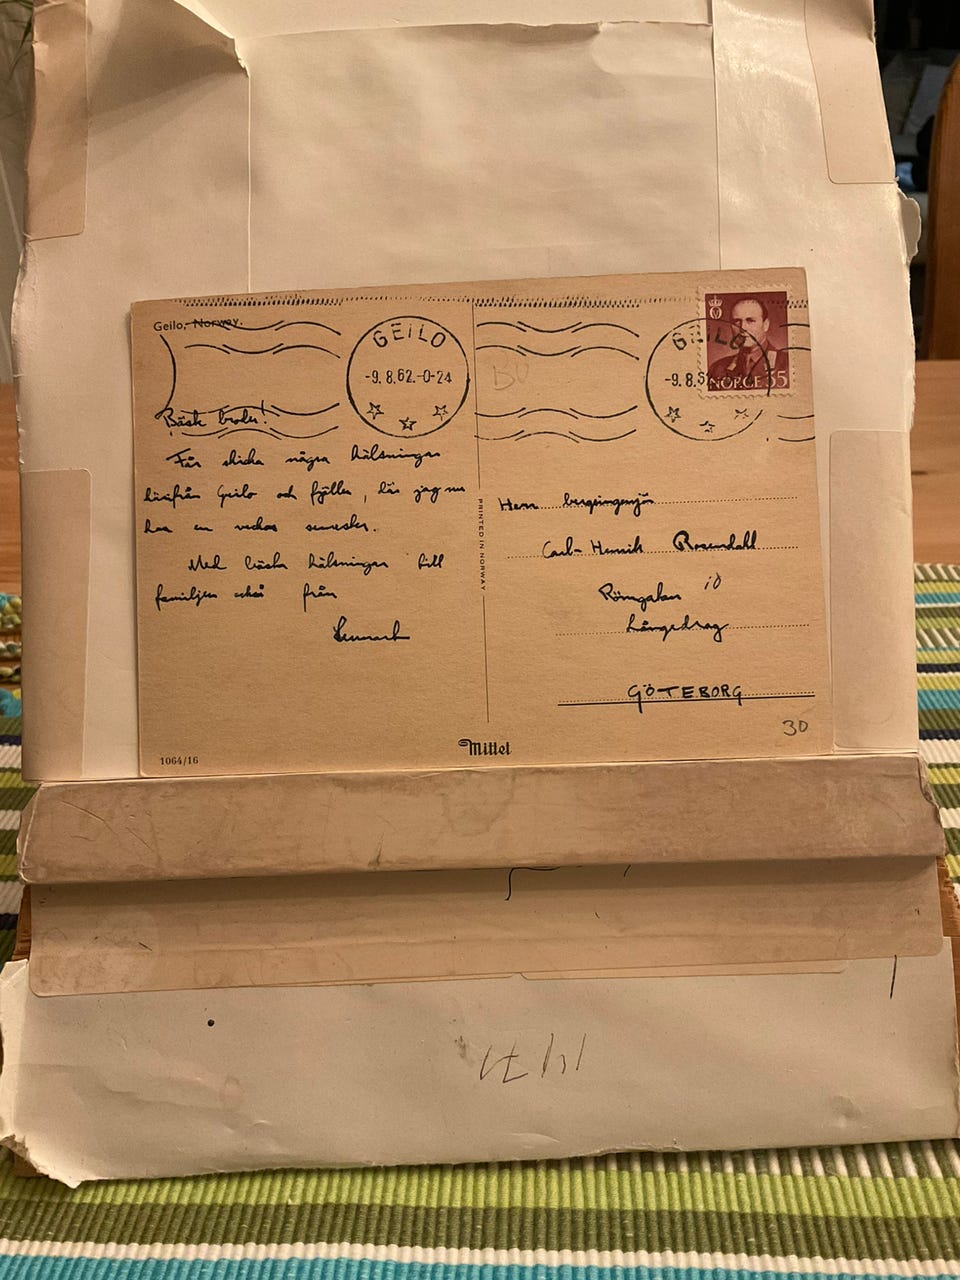 Geilo, Norway.
GEILO
-9.8.62.-0-24
GEILO
-9.8.6
NORGE 35
Bäste broder!
Får skicka några hälsningar
härifrån Geilo och fjällen, där jag nu
har en veckas semester.
Med bästa hälsningar till
familjen också från
Lennart
PRINTED IN NORWAY
Herr bergsingenjör
Carl-Henrik Rosendahl
Römgatan 10
Långedrag
GÖTEBORG
30
1064/16
Mittet